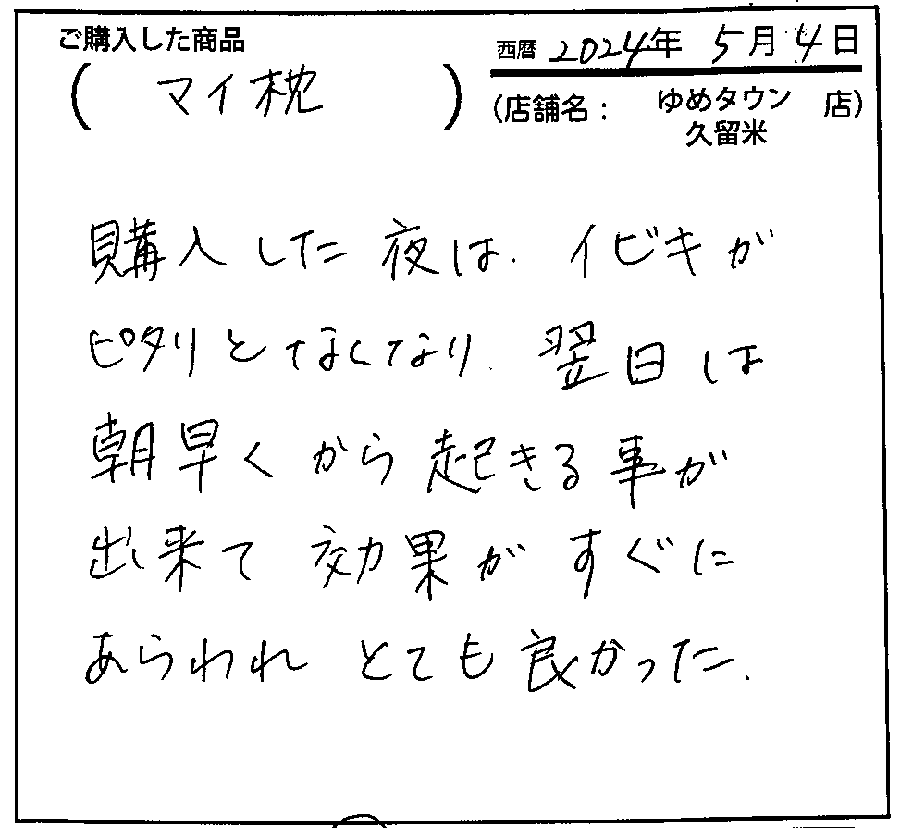 ご購入した商品
( マイ枕 )
西暦 2024年 5月 4日
(店舗名： ゆめタウン 店)
久留米
購入した夜は、イビキが
ピタリとなくなり、翌日は
朝早くから起きる事が
出来て効果がすぐに
あらわれとても良かった。